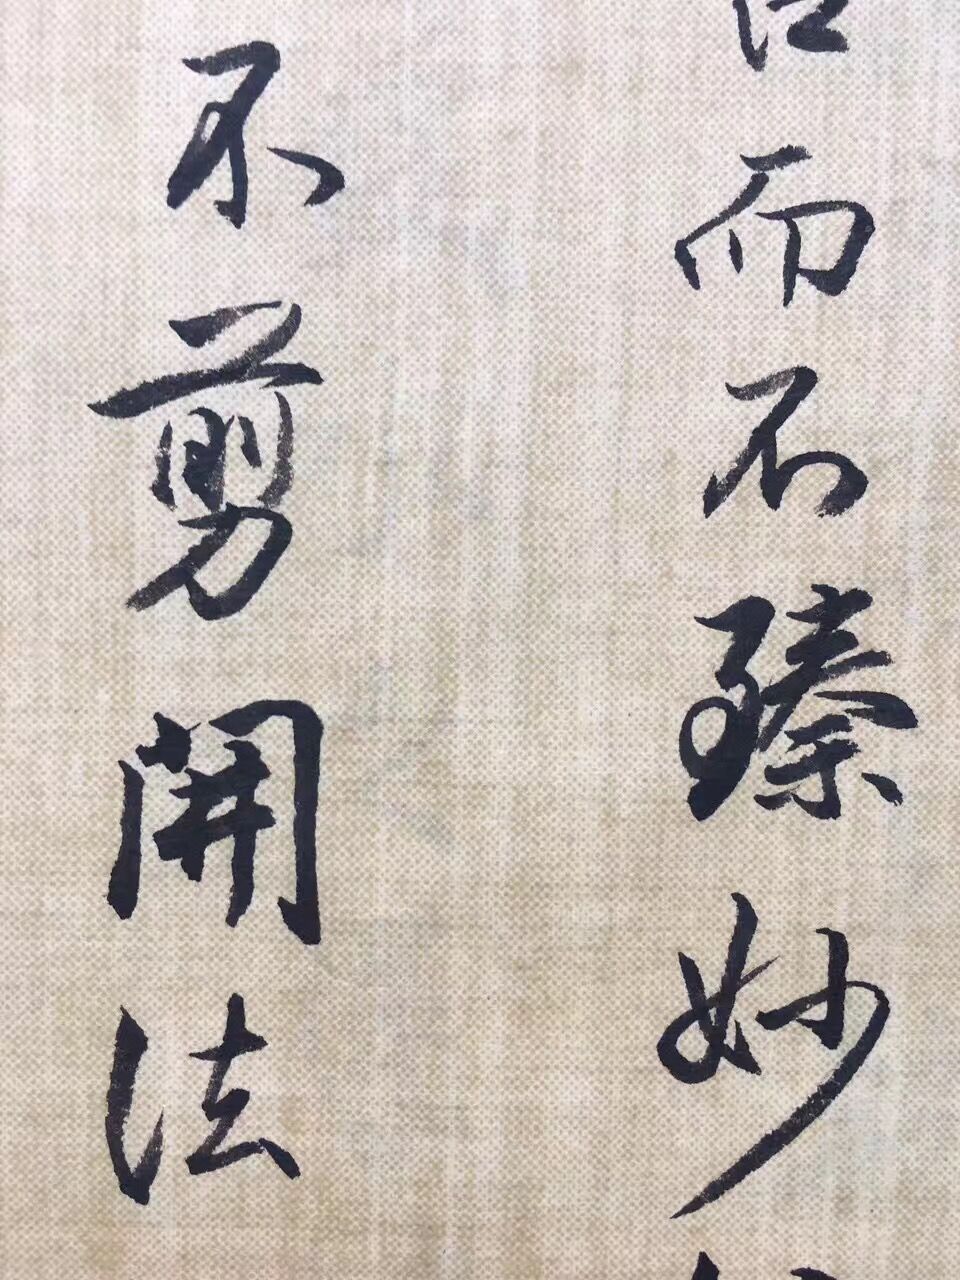 而不臻妙
不剪開法